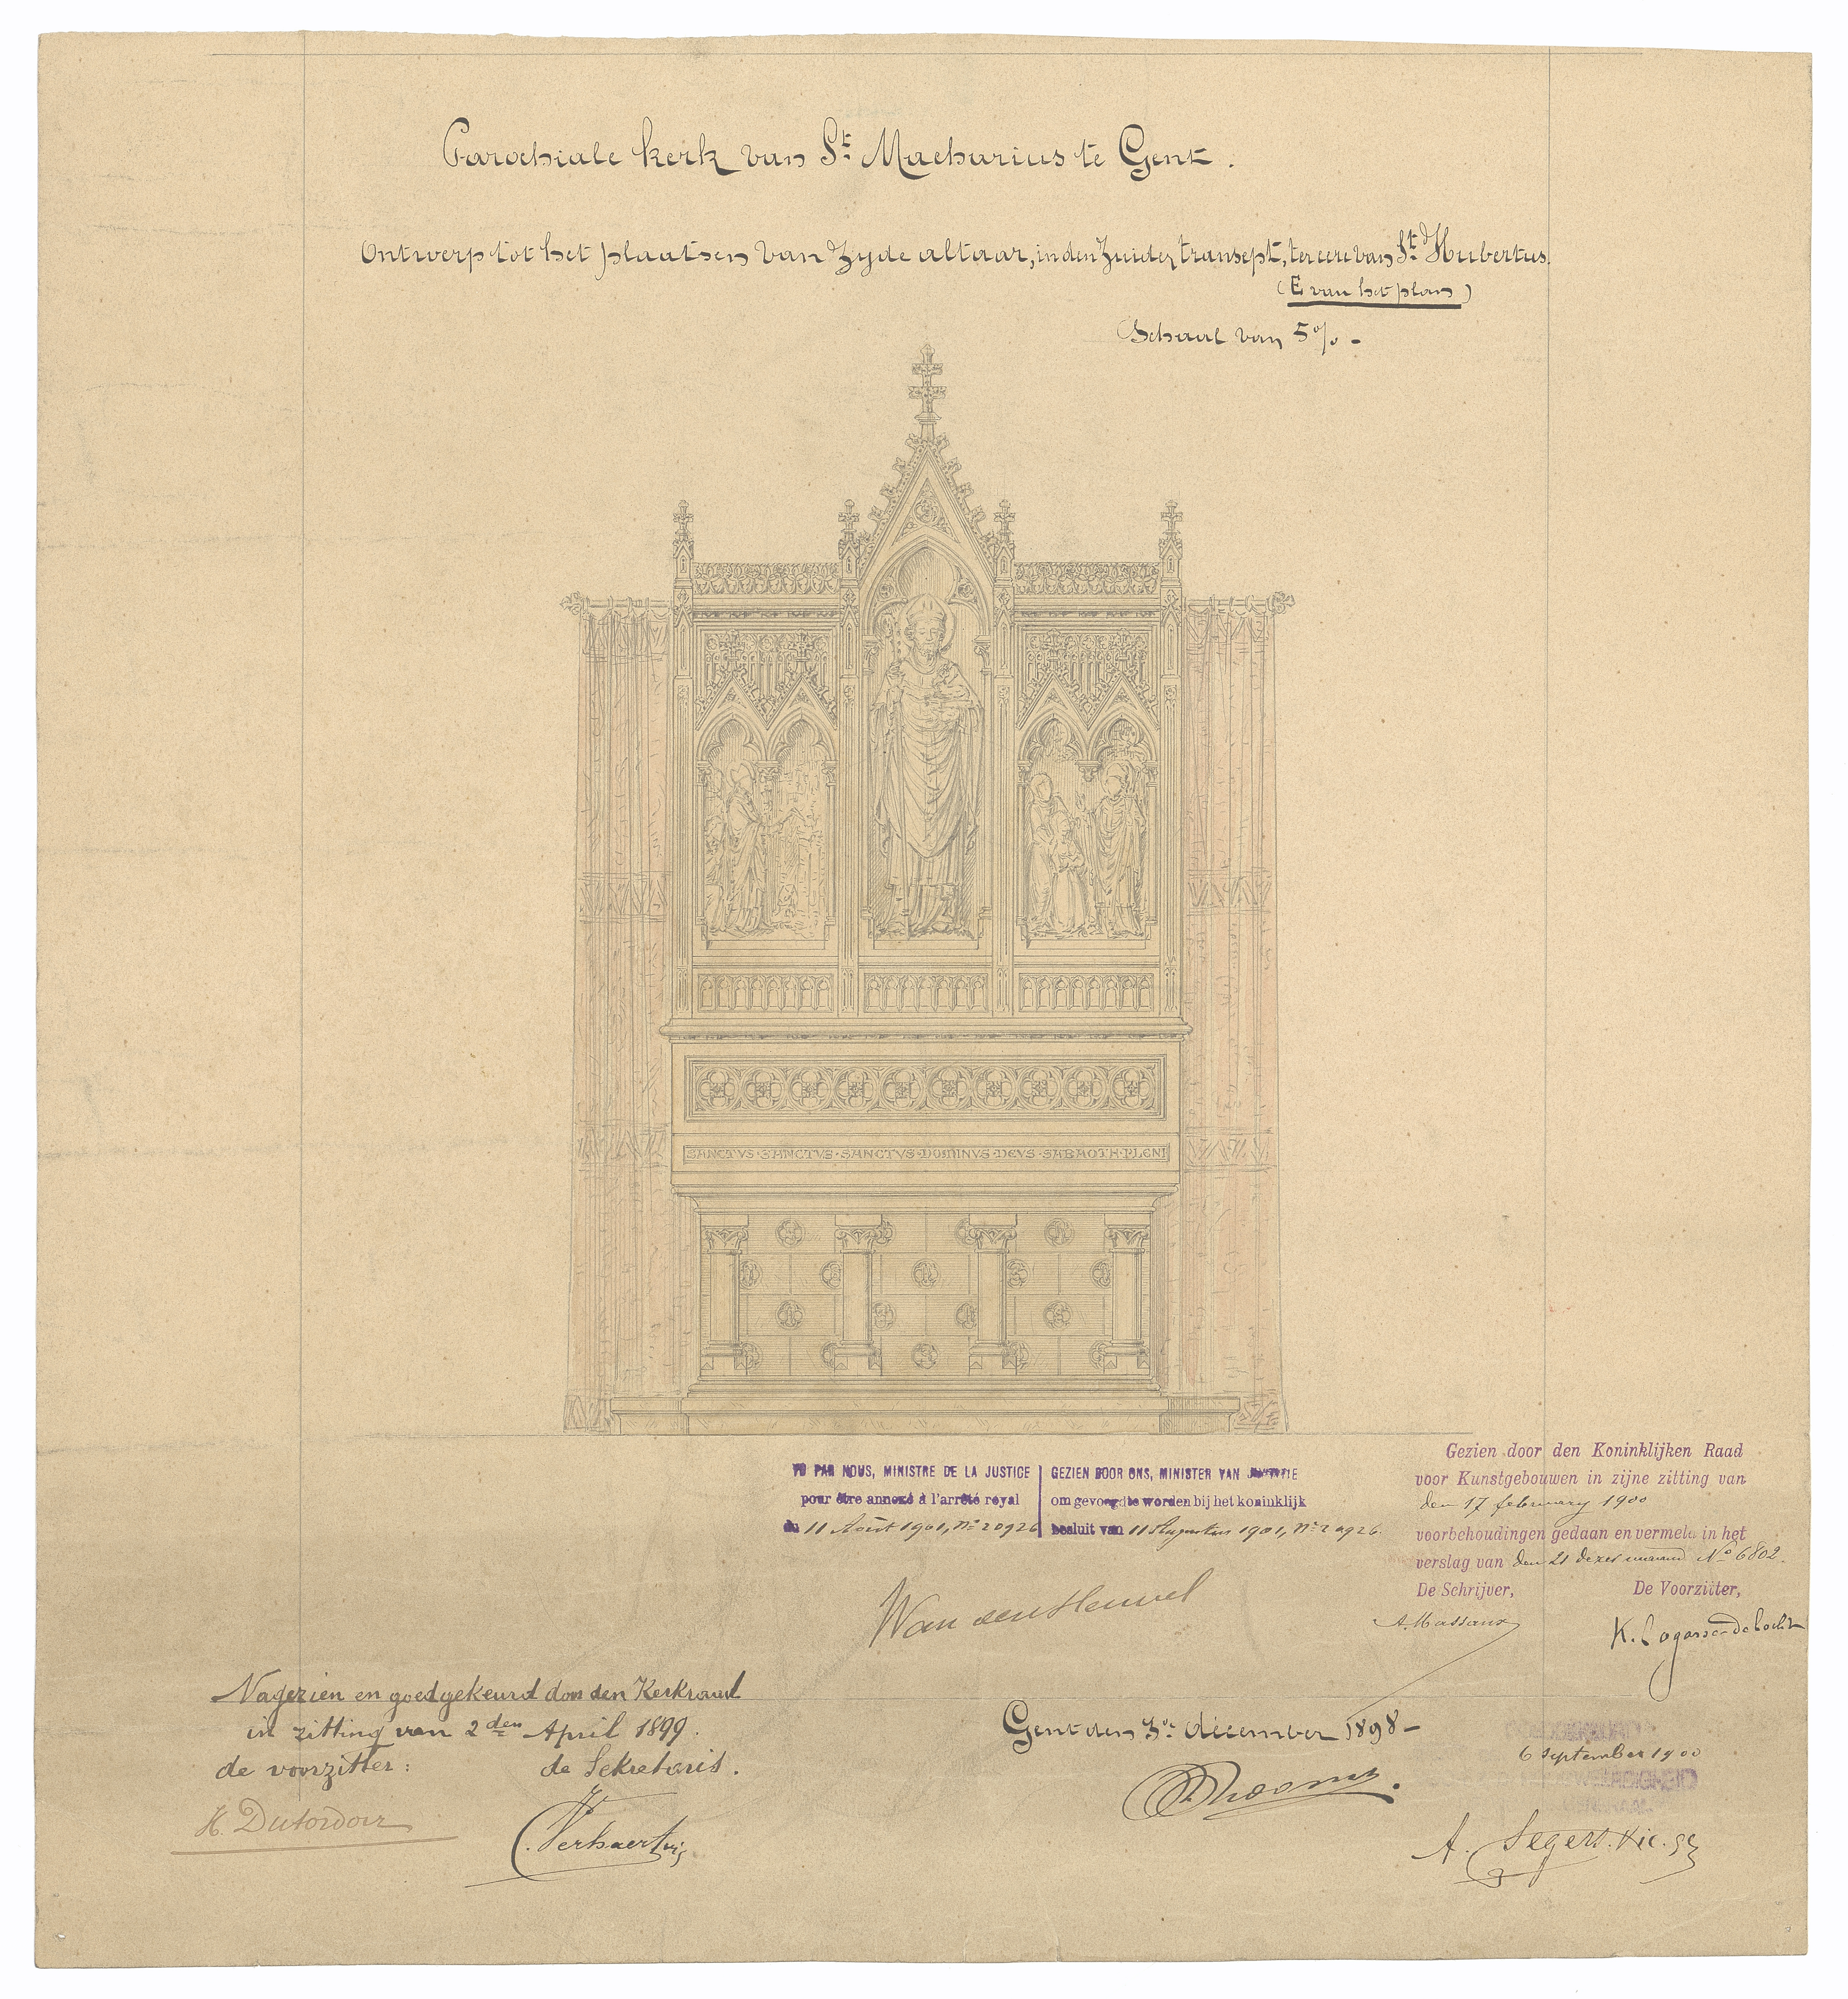 Parochiale kerk van St. Macharius te Gent.
Ontwerp tot het plaatsen van Zyde altaar, in den Zuider transept, ter eere van St. Hubertus.
(E van het plan)
Schaal van 5% -
SANCTVS·SANCTVS·SANCTVS·DOMINVS·DEVS·SABAOTH·PLENI
VU PAR NOUS, MINISTRE DE LA JUSTICE
pour être annexé à l'arrêté royal
du 11 Août 1901, N° 20926
GEZIEN DOOR ONS, MINISTER VAN JUSTITIE
om gevoegd te worden bij het koninklijk
besluit van 11 Augustus 1901, N° 20926.
Van den Heuvel
Gezien door den Koninklijken Raad
voor Kunstgebouwen in zijne zitting van
den 17 february 1900
voorbehoudingen gedaan en vermeld in het
verslag van den 21 dezer maand N° 6802.
De Schrijver, De Voorzitter,
A. Massaux
Nagezien en goedgekeurd door den Kerkraad
in zitting van 2den April 1899.
de voorzitter: de Sekretaris.
Gent den 3e december 1898 -
6 September 1900
A. Segers. Vic. ge